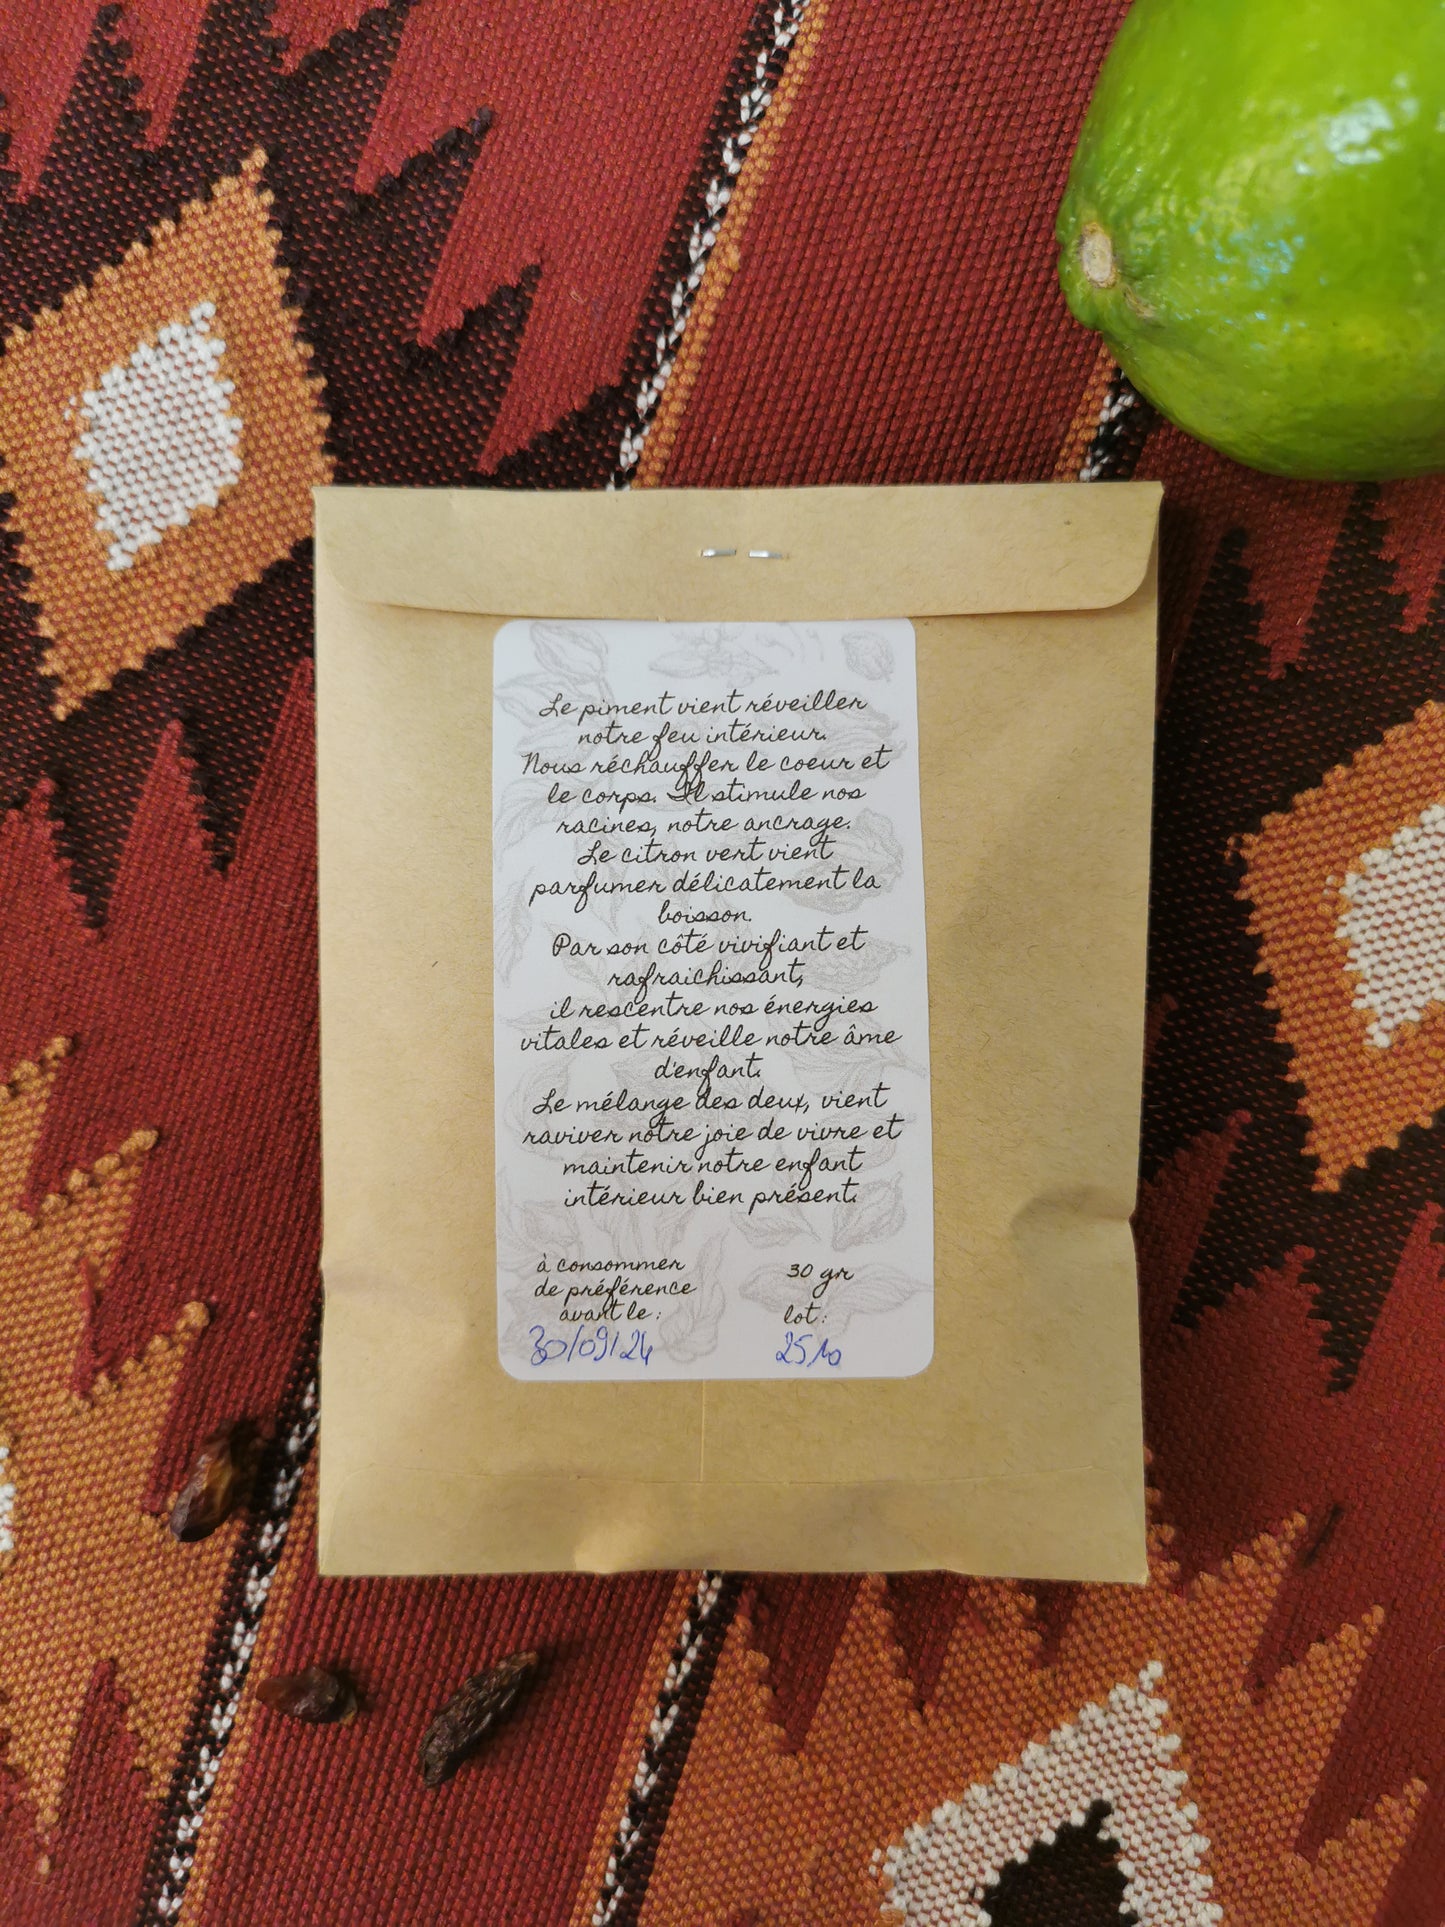 Le piment vient réveiller
notre feu intérieur.
Nous réchauffer le coeur et
le corps. Il stimule nos
racines, notre ancrage.
Le citron vert vient
parfumer délicatement la
boisson.
Par son côté vivifiant et
rafraichissant,
il rescentre nos énergies
vitales et réveille notre âme
d'enfant.
Le mélange des deux, vient
raviver notre joie de vivre et
maintenir notre enfant
intérieur bien présent.
à consommer
de préférence
avant le :
30/09/24
30 gr
lot :
2510